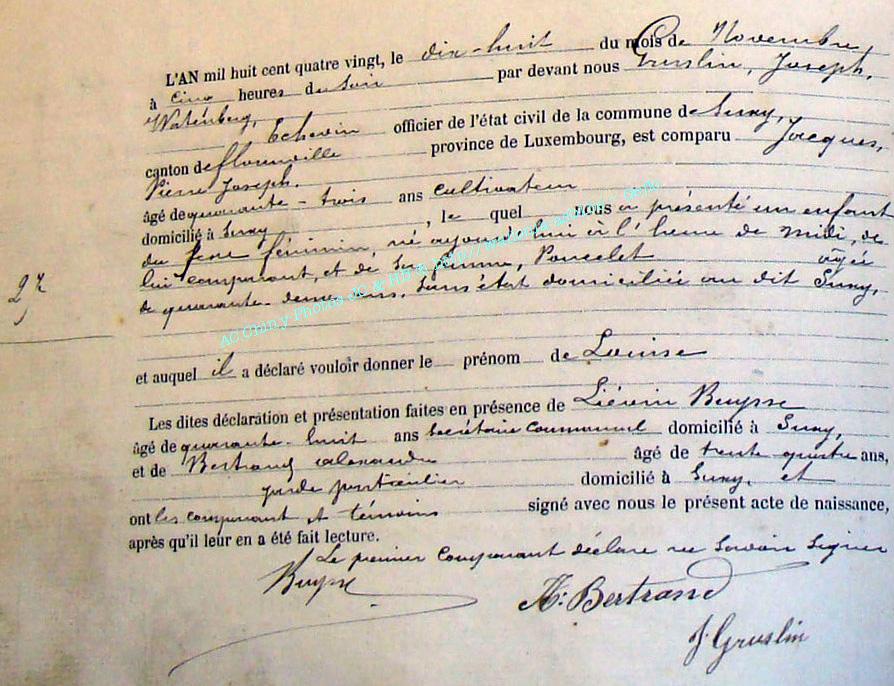 L'AN mil huit cent quatre vingt, le dix-huit du mois de Novembre,
à cinq heures du soir par devant nous Gruslin, Joseph,
Echevin officier de l'état civil de la commune de Suxy,
canton de florenville province de Luxembourg, est comparu Jacques,
Pierre Joseph.
âgé de quarante-trois ans cultivateur
domicilié à Suxy, le quel nous a présenté un enfant
du sexe féminin, né aujourd'hui à l'heure de midi, de
lui comparant, et de sa femme, Poncelet âgée
de quarante-deux ans, sans état domiciliée au dit Suxy,
27
et auquel il a déclaré vouloir donner le prénom de Louise
Les dites déclaration et présentation faites en présence de Liévin Buysse
âgé de quarante-huit ans secrétaire communal domicilié à Suxy,
et de Bertrand alexandre âgé de trente quatre ans,
garde particulier domicilié à Suxy, et
ont les comparant et témoins signé avec nous le présent acte de naissance,
après qu'il leur en a été fait lecture.
Le premier comparant déclare ne savoir signer
Buysse
A: Bertrand
J. Gruslin